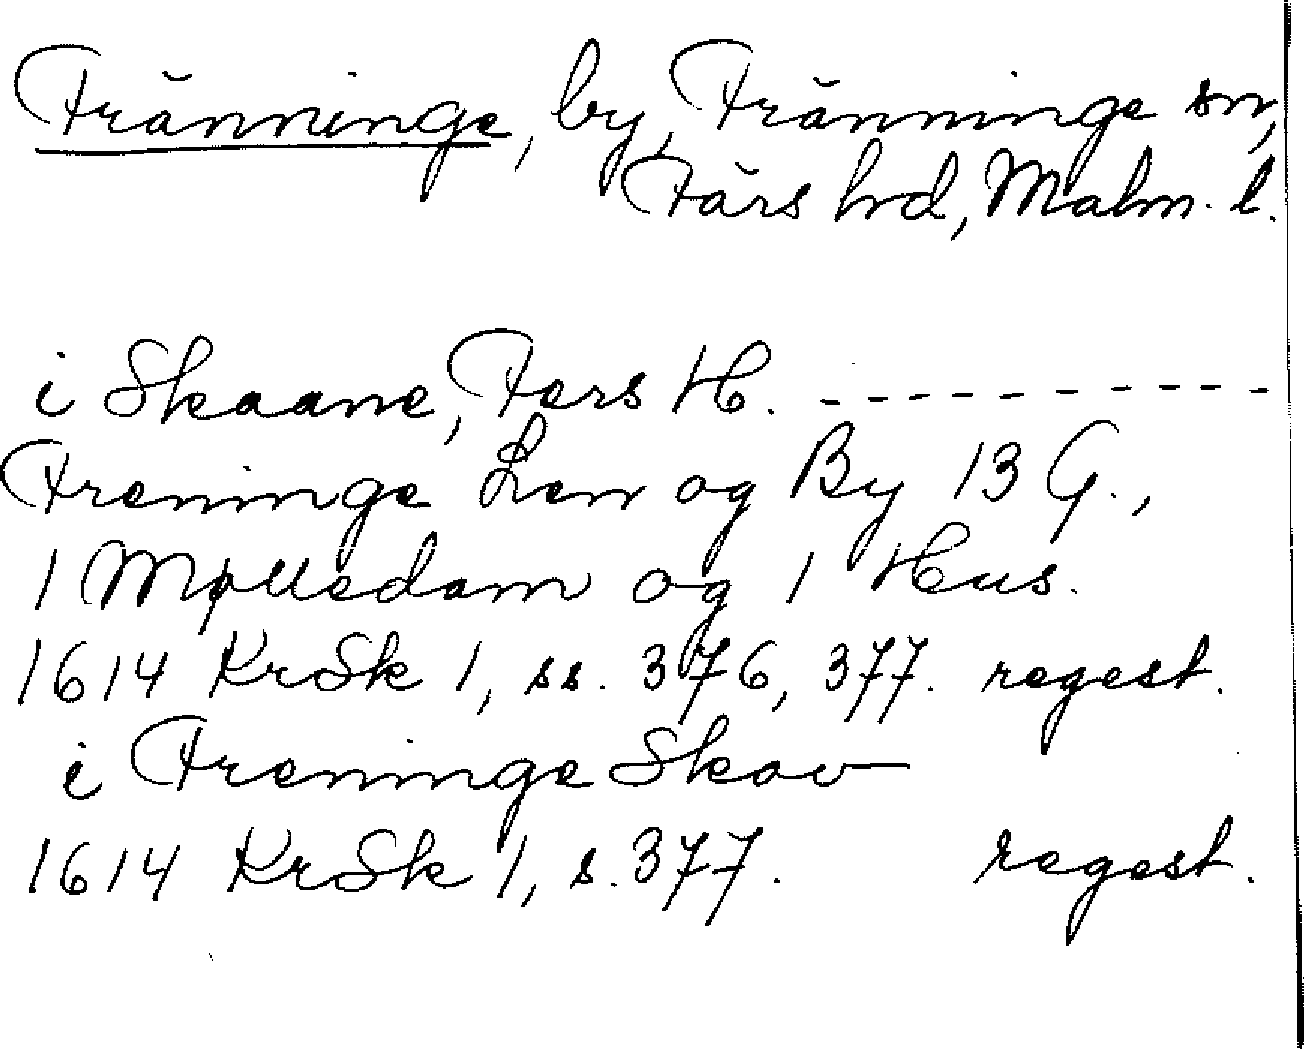 Fränninge, by, Fränninge sn,
Färs hd, Malm. l.
i Skaane, Fers H. ----------
Freninge Len og By 13 G.,
1 Mølledam og 1 Hus.
1614 KrSk 1, ss. 376, 377. regest.
i Freninge Skov
1614 KrSk 1, s. 377. regest.